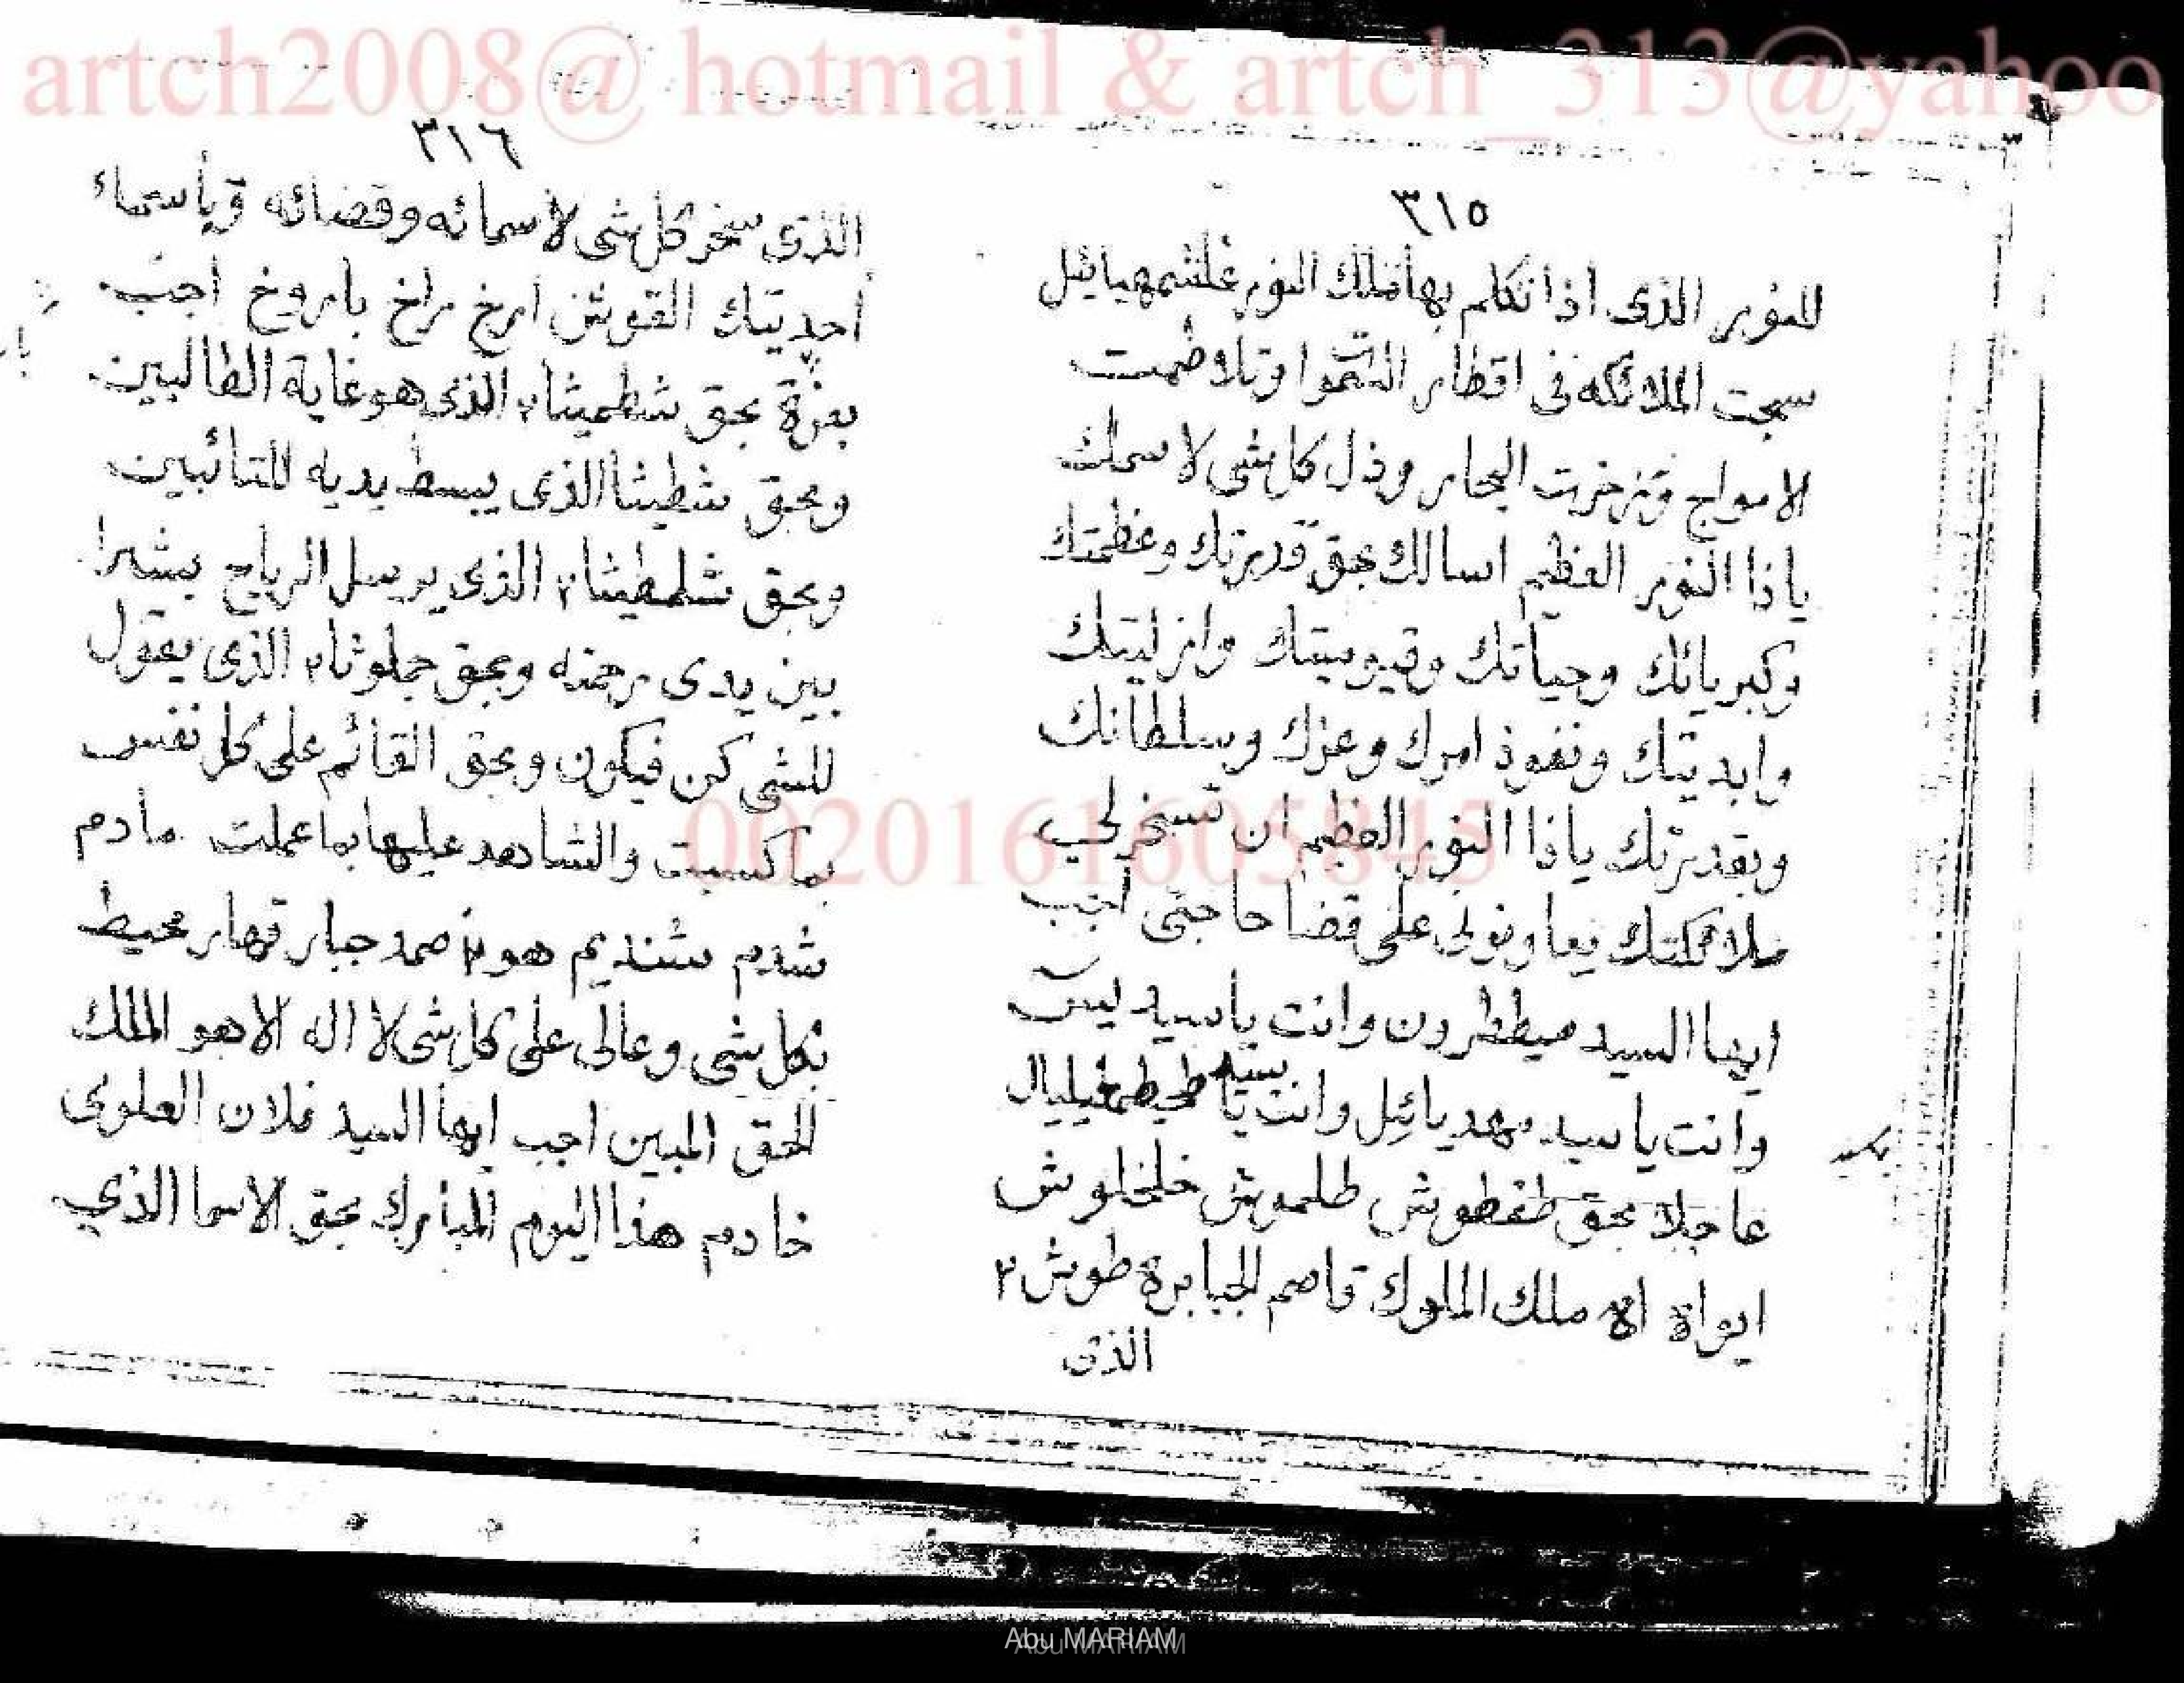 artch2008@ hotmail & artch_313@yahoo
٣١٥
للنور الذى اذا تكلم بها ملك النور غلشمهيائيل
سبحت الملائكه فى اقطار السموات وتلاطمت
الامواج وتزخرت البحار وذل كل شى لاسمك
ياذا النور العظيم اسالك بحق قدرتك وعظمتك
وكبريائك وحياتك وقيوميتك وازليتك
وابديتك ونفوذ امرك وعزك وسلطانك
وبقدرتك ياذا النور العظيم ان تسخر لى
ملائكتك يعاونونى على قضا حاجتى اجب
ايها السيد ميططرون وانت ياسيد
وانت ياسيد مهديائيل وانت يا
عاجلا بحق طفطوش طلموش خلخلوش
ايواه اه ملك الملوك قاصم الجبابرة طوش ٢
الذى
٣١٦
الذى سخر كل شى لاسمائه وقضائه وبأسماء
أحديتك القوش ارخ راخ باروخ أجب
بعزة بحق شطميثا ٢ الذى هو غاية الطالبين
وبحق شطيثا الذى يبسط يديه للتائبين
وبحق شلمطيثا ٢ الذى يرسل الرياح بشرا
بين يدى رحمته وبحق جلوثا ٢ الذى يقول
للشى كن فيكون وبحق القائم على كل نفس
بما كسبت والشاهد عليها بما عملت مادم
شدم شنديم هو ٢ صمد جبار قهار محيط
بكل شى وعالى على كل شى لا اله الا هو الملك
الحق المبين اجب ايها السيد فلان العلوى
خادم هذا اليوم المبارك بحق الاسما الذي
0020161605845
Abu MARIAM